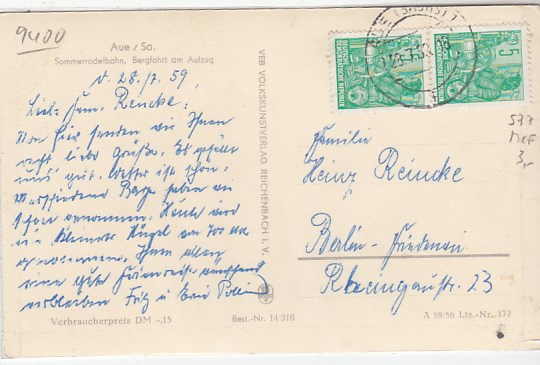 9400
Aue / Sa.
Sommerrodelbahn, Bergfahrt am Aufzug
d. 28./7. 59,
Lieb. Fam. Reincke:
Von hier senden wir Ihnen
recht liebe Grüße. Es gefällt
uns gut. Wetter ist schön.
Verschiedene Berge haben wir
schon genommen. Heute wird
ein kleinerer Hügel
genommen. Ihnen allen
eine gute Ferienreise
verbleiben Fritz u.
Verbraucherpreis DM -,15
Best.-Nr. 14/316
VEB VOLKSKUNSTVERLAG REICHENBACH I. V.
(SACHS)
DEUTSCHE DEMOKRATISCHE REPUBLIK
5
577
MeF
3,-
Familie
Heinz Reincke
Berlin-Friedenau
Rheingaustr. 23
A 59/56 Ltz.-Nr. 172